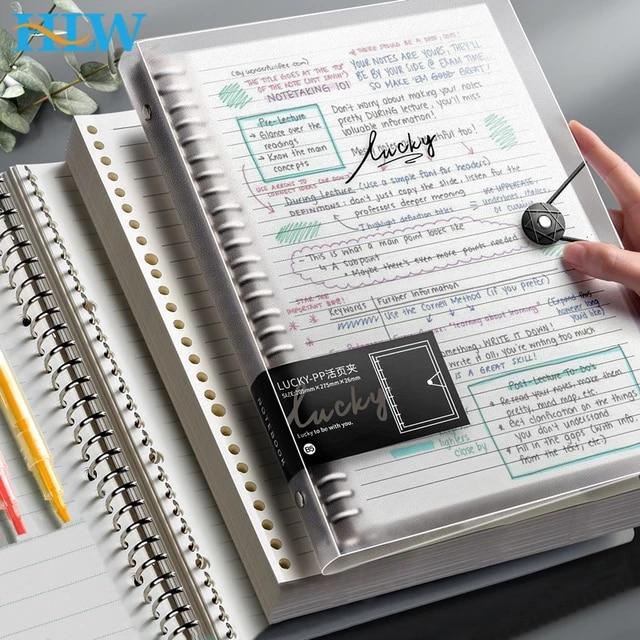 HLW
(by wonderwhizkid.com)
THE TITLE GOES AT THE TOP
OF THE NOTE
NOTETAKING 101
* THERE SHOULD BE A DATE, TOO! *
YOUR NOTES ARE YOURS, THEY'LL
BE BY YOUR SIDE @ EXAM TIME...
SO MAKE 'EM GOOD GREAT!
Pre-Lecture
→ Glance over the
readings
→ Know the main
concepts
Don't worry about making your notes
pretty DURING lecture, you'll miss
valuable information!
lucky
During Lecture (Use a simple font for headers)
DEFINITIONS: don't just copy the slide, listen for the
professors deeper meaning
Highlight definition
- This is what a main point looks like
↳ A subpoint
• Maybe there's even more points needed
Keywords | Further information
Use the Cornell Method (if you prefer)
"learning about learning"
something, WRITE IT DOWN!
write it all, you're writing too much
IS A GREAT SKILL!
Post-Lecture To-Do's
• Re-read your notes, make them
pretty, mind map, etc.
• Get clarification on the things
you don't understand
• Fill in the gaps (with info
from the text, etc)
close by
LUCKY-PP活页夹
SIZE:205mm×275mm×26mm
lucky
Lucky to be with you.
B5
NOTEBOOK